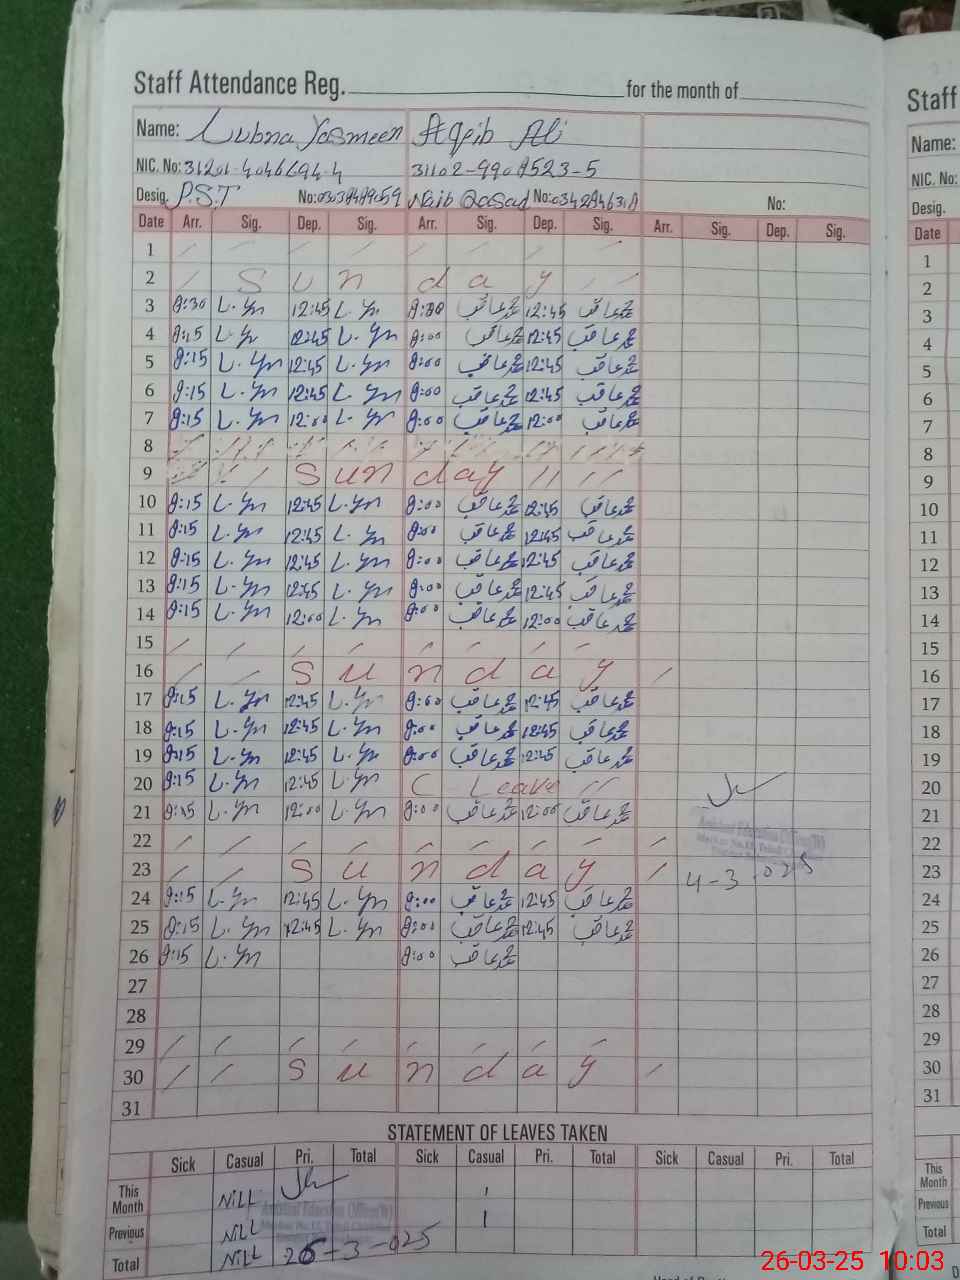 Staff Attendance Reg. for the month of
Staff
Name: Lubna Yasmeen Aqib Ali
Name:
NIC. No: 31201-4046694-4 31102-9908523-5
NIC. No:
Desig. P.S.T No: Naib Qasad No: No:
Desig.
Date Arr. Sig. Dep. Sig. Arr. Sig. Dep. Sig. Arr. Sig. Dep. Sig.
Date
1
2 Sunday
3 8:30 L.Yn 12:45 L.Yn 8:00 محمد عاقب 12:45 محمد عاقب
4 8:15 L.Yn 12:45 L.Yn 8:00 محمد عاقب 12:45 محمد عاقب
5 8:15 L.Yn 12:45 L.Yn 8:00 محمد عاقب 12:45 محمد عاقب
6 8:15 L.Yn 12:45 L.Yn 8:00 محمد عاقب 12:45 محمد عاقب
7 8:15 L.Yn 12:00 L.Yn 8:00 محمد عاقب 12:00 محمد عاقب
8
9 Sunday
10 8:15 L.Yn 12:45 L.Yn 8:00 محمد عاقب 12:45 محمد عاقب
11 8:15 L.Yn 12:45 L.Yn 8:00 محمد عاقب 12:45 محمد عاقب
12 8:15 L.Yn 12:45 L.Yn 8:00 محمد عاقب 12:45 محمد عاقب
13 8:15 L.Yn 12:45 L.Yn 8:00 محمد عاقب 12:45 محمد عاقب
14 8:15 L.Yn 12:00 L.Yn 8:00 محمد عاقب 12:00 محمد عاقب
15
16 Sunday
17 8:15 L.Yn 12:45 L.Yn 8:00 محمد عاقب 12:45 محمد عاقب
18 8:15 L.Yn 12:45 L.Yn 8:00 محمد عاقب 12:45 محمد عاقب
19 8:15 L.Yn 12:45 L.Yn 8:00 محمد عاقب 12:45 محمد عاقب
20 8:15 L.Yn 12:45 L.Yn C Leave
21 8:15 L.Yn 12:00 L.Yn 8:00 محمد عاقب 12:00 محمد عاقب
22
23 Sunday 4-3-025
24 8:15 L.Yn 12:45 L.Yn 8:00 محمد عاقب 12:45 محمد عاقب
25 8:15 L.Yn 12:45 L.Yn 8:00 محمد عاقب 12:45 محمد عاقب
26 8:15 L.Yn 8:00 محمد عاقب
27
28
29
30 Sunday
31
STATEMENT OF LEAVES TAKEN
Sick Casual Pri. Total Sick Casual Pri. Total Sick Casual Pri. Total
This Month NiLL 1
Previous NiLL 1
Total NiLL 26-3-025
This Month
Previous
Total
26-03-25 10:03